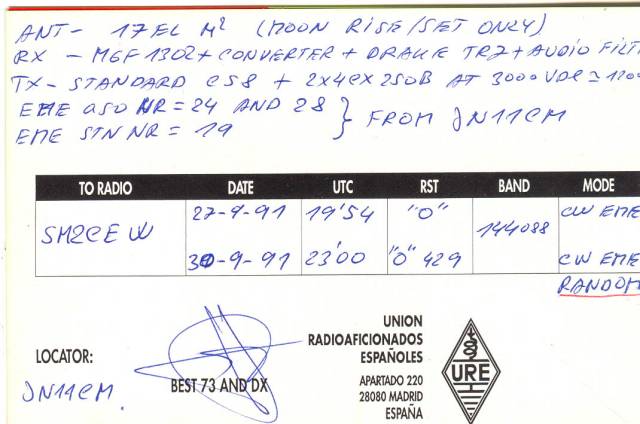 ANT - 17EL M² (MOON RISE/SET ONLY)
RX - MGF1302 + CONVERTER + DRAKE TR7 + AUDIO FILT
TX - STANDARD C58 + 2X4CX250B AT 3000 VDC ≃
EME QSO NR = 24 AND 28 } FROM JN11CM
EME STN NR = 19
TO RADIO DATE UTC RST BAND MODE
SM2CEW 27-9-91 19'54 "O" 144088 CW EME
30-9-91 23'00 "O" 429 CW EME
RANDOM
UNION
RADIOAFICIONADOS
ESPAÑOLES
LOCATOR:
JN11CM.
BEST 73 AND DX
APARTADO 220
28080 MADRID
ESPAÑA
URE